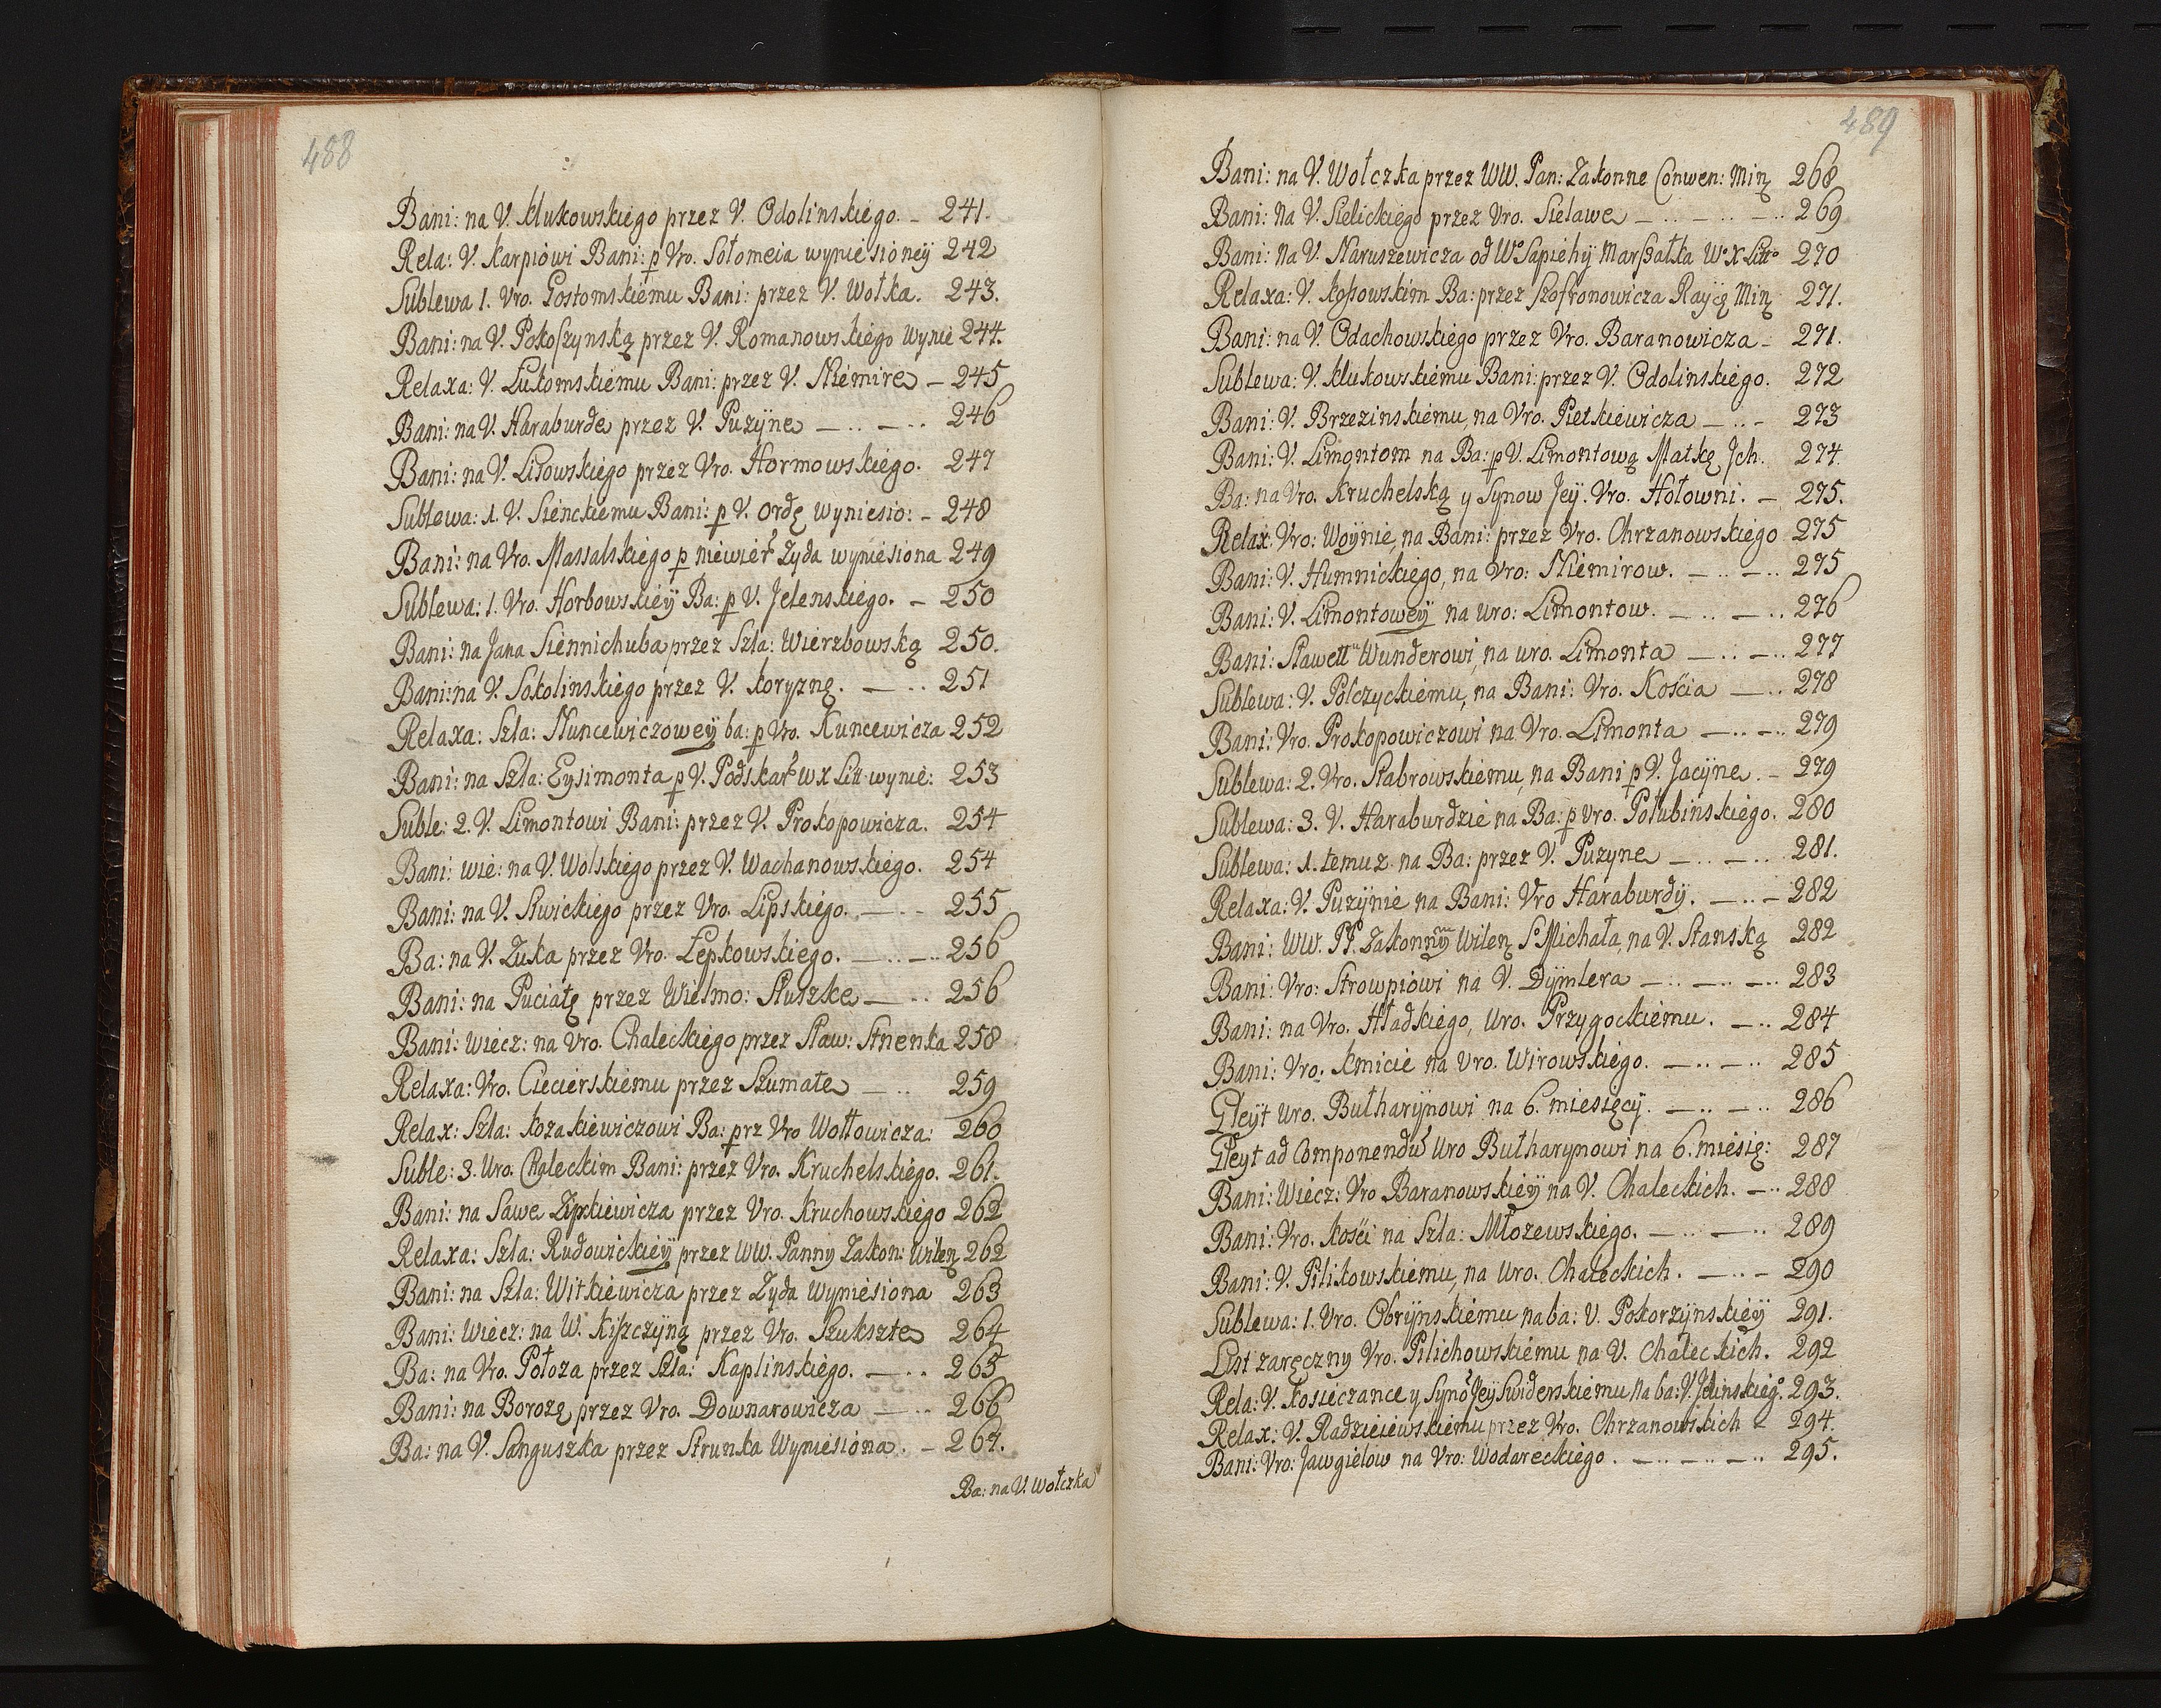 488
Bani: na V. Klukowskiego przez V. Odolinskiego. - 241.
Rela: V. Karpiowi Bani: p Vro. Sołomeia wyniesioney 242
Sublewa 1. Vro. Gostomskiemu Bani: przez V. Wołka. 243.
Bani: na V. Pokoszynską przez V. Romanowskiego wynie 244.
Relaxa: V. Łukomskiemu Bani: przez V. Niemire - 245
Bani: na V. Haraburde przez V. Puzyne - .. - .. 246
Bani: na V. Lisowskiego przez Vro. Hormowskiego. 247
Sublewa: 1. V. Sienckiemu Bani: p V. Ordę wyniesio: - 248
Bani: na Vro. Massalskiego p niewier Zyda wyniesiona 249
Sublewa: 1. Vro. Horbowskiey Ba: p V. Jelenskiego. - 250
Bani: na Jana Siennichuba przez Szla: Wierzbowską 250.
Bani: na V. Sokolinskiego przez V. Koryznę. - .. 251
Relaxa: Szla: Nuncewiczowey ba: p Vro. Kuncewicza 252
Bani: na Szla: Eysimonta p V. Podskar W X Litt wynie: 253
Suble: 2. V. Limontowi Bani: przez V. Prokopowicza. 254
Bani: wie: na V. Wolskiego przez V. Wachanowskiego. 254
Bani: na V. Siwickiego przez Vro. Lipskiego. - .. - 255
Ba: na V. Zuka przez Vro. Łepkowskiego. - .. - .. 256
Bani: na Puciatę przez Wielmo: Słuszke - .. 256
Bani: wiecz: na Vro. Chaleckiego przez Sław: Stnenka 258
Relaxa: Vro. Ciecierskiemu przez Szumałe - .. 259
Relax: Szla: Kozakiewiczowi Ba: prz Vro Wołłowicza: 260
Suble: 3. Uro. Chaleckim Bani: przez Vro. Kruchelskiego. 261.
Bani: na Sawe Zipkiewicza przez Vro. Kruchowskiego 262
Relaxa: Szla: Rudowickiey przez WW. Panny Zakon: Wilen 262
Bani: na Szla: Witkiewicza przez Zyda wyniesiona 263
Bani: Wiecz: na W. Kiszczyną przez Vro. Szukszte 264
Ba: na Vro. Połoza przez Szla: Kaplinskiego. - .. 265
Bani: na Borozę przez Vro. Downarowicza - .. 266
Ba: na V. Sanguszka przez Strunka Wyniesiona. - 267.
Ba: na V. Wołczka
489
Bani: na V. Wołczka przez WW. Pan: Zakonne Conwen: Min 268
Bani: na V. Sielickiego przez Vro. Sielawe - .. - .. - .. 269
Bani: na V. Naruszewicza od Wo Sapiehy Marszałka Wo X Litto 270
Relaxa: V. Kossowskim Ba: przez Szofronowicza Raycę Min 271.
Bani: na V. Odachowskiego przez Vro. Baranowicza - 271.
Sublewa: V. Klukowskiemu Bani: przez V. Odolinskiego. 272
Bani: V. Brzezinskiemu, na Vro. Pietkiewicza - .. - 273
Bani: V. Limontom na Ba: p V. Limontową Matkę Jch. 274
Ba: na Vro. Kruchelską y Synow Jey. Vro. Hołowni. - 275.
Relax: Vro: Woynie, na Bani: przez Vro. Chrzanowskiego 275
Bani: V. Humnickiego, na Vro: Niemirow. - .. - .. 275
Bani: V. Limontowey na uro: Limontow. - .. - .. 276
Bani: Sławett Wunderowi, na uro. Limonta - .. - .. 277
Sublewa: V. Połczyckiemu, na Bani: Vro. Kościa - .. 278
Bani: Vro. Prokopowiczowi na Vro. Limonta - .. - .. 279
Sublewa: 2. Vro. Stabrowskiemu, na Bani p V. Jacyne. - 279
Sublewa: 3. V. Haraburdzie na Ba: p vro. Połubinskiego. 280
Sublewa: 1. temuz na Ba: przez V. Puzyne - .. - .. 281.
Relaxa: V. Puzynie na Bani: Vro Haraburdy. - .. - 282
Bani: WW. PP. Zakonnym Wilen S Michała, na V. Stanską 282
Bani: Vro: Strowpiowi na V. Dymlera - .. - .. - .. 283
Bani: na Vro. Hładkiego, Uro. Przygockiemu. - .. 284
Bani: Vro: Kmicie na Vro. Wirowskiego. - .. - .. 285
Gleyt uro. Bułharynowi na 6. miesięcy. - .. - .. 286
Gleyt ad Componendu Uro Bułharynowi na 6. miesię: 287
Bani: Wiecz: Vro Baranowskiey na V. Chaleckich. - .. 288
Bani: Vro. Kości na Szla: Młozewskiego. - .. - .. 289
Bani: V. Pilikowskiemu, na Uro. Chaleckich. - .. - 290
Sublewa: 1. Vro. Obrynskiemu na ba: V. Pokorzynskiey 291.
List zaręczny Vro. Pilichowskiemu na V. Chaleckich. 292
Rela: V. Kosieczance y Syno Jey Swiderskiemu na ba: V. Jelinskieg. 293.
Relax: V. Radzieiewskiemu przez Vro. Chrzanowskich - 294.
Bani: Vro: Jawgielow na Vro: Wodareckiego. - .. - .. - .. 295.